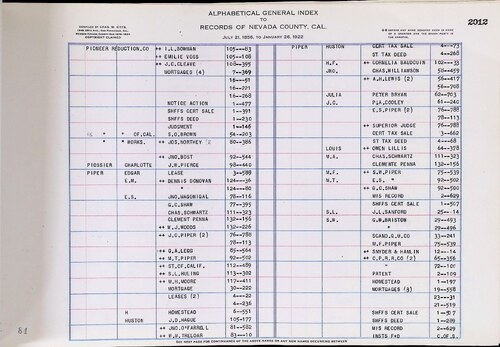 ALPHABETICAL GENERAL INDEX
TO
RECORDS OF NEVADA COUNTY, CAL.
JULY 21, 1856, TO JANUARY 26, 1922
2012
PIONEER REDUCTION.CO ++ I.L.BOWMAN 105
++ EMILIE VOSS 105-108
++ J.C.GLEAVE 108-395
MORTGAGES (4) 7-369
16-221
16-268
NOTICE ACTION 1-477
SHFFS CERT SALE 1-391
SHFFS DEED 1-230
JUDGMENT 1-146
" " OF.CAL. S.D.BROWN 54-203
" " WORKS. ++ JOS.NORTHEY 2 80-386
++ JNO.BOST 92-544
PIOSSIER CHARLOTTE J.W.PIERCE 98-440
PIPER EDGAR LEASE 3-588
E.M. ++ DENNIS DONOVAN
E.S. JNO.MAGONIGAL 78-116
G.C.SHAW 77-395
CHAS.SCHWARTZ 111-323
CLEMENT PENNA 132-156
++ W.J.WOODS 132-226
++ J.C.PIPER (2) 76-788
78-113
++ G.A.LEGG 85-564
++ M.T.PIPER 92-502
++ ST.OF.CALIF. 112-489
++ S.L.HULING 113-302
++ N.H.MOORE 117-411
MORTGAGE 30-220
LEASES (2) 4-22
4-236
H HOMESTEAD 6-551
HUSTON J.D.HAGUE 105-177
++ JNO.O'FARRELL 81-580
++ P.M.TRELOAR 83-10
PIPER HUSTON CERT TAX SALE
ST TAX DEED 4-268
H.F. ++ CORNELIA BAUDOUIN
JNO. CHAS.WILLIAMSON 58-459
++ A.H.LEWIS (2) 58-417
58-708
JULIA PETER BRYAN 62-703
J.C. P.A.COOLEY 61-240
E.S.PIPER (2) 76-788
78-113
++ SUPERIOR JUDGE 76-788
CERT TAX SALE 3-662
ST TAX DEED 4-68
LOUIS ++ OWEN LILLIS 64-378
M.A. CHAS.SCHWARTZ 111-323
CLEMENS PENNA 132-156
M.F. ++ S.W.PIPER 75-539
M.T. ++ E.S. " 92-502
++ G.C.SHAW 92-500
MIS RECORD 2-629
SHFFS CERT SALE 1-507
S.L. ++ J.L.SANFORD 25-14
S.W. ++ G.W.BRISTON 29-493
" 29-496
SCAND.G.M.CO 33-241
M.F.PIPER 75-539
++ SNYDER & HAMLIN 12-14
++ C.P.R.R.CO (2) 65-356
" 72-107
PATENT 2-109
HOMESTEAD 1-197
MORTGAGES (3) 19-558
23-31
21-519
SHFFS CERT SALE 1-507
SHFFS DEED 1-289
MIS RECORD 2-629
INSTS F&O C.OF.S.